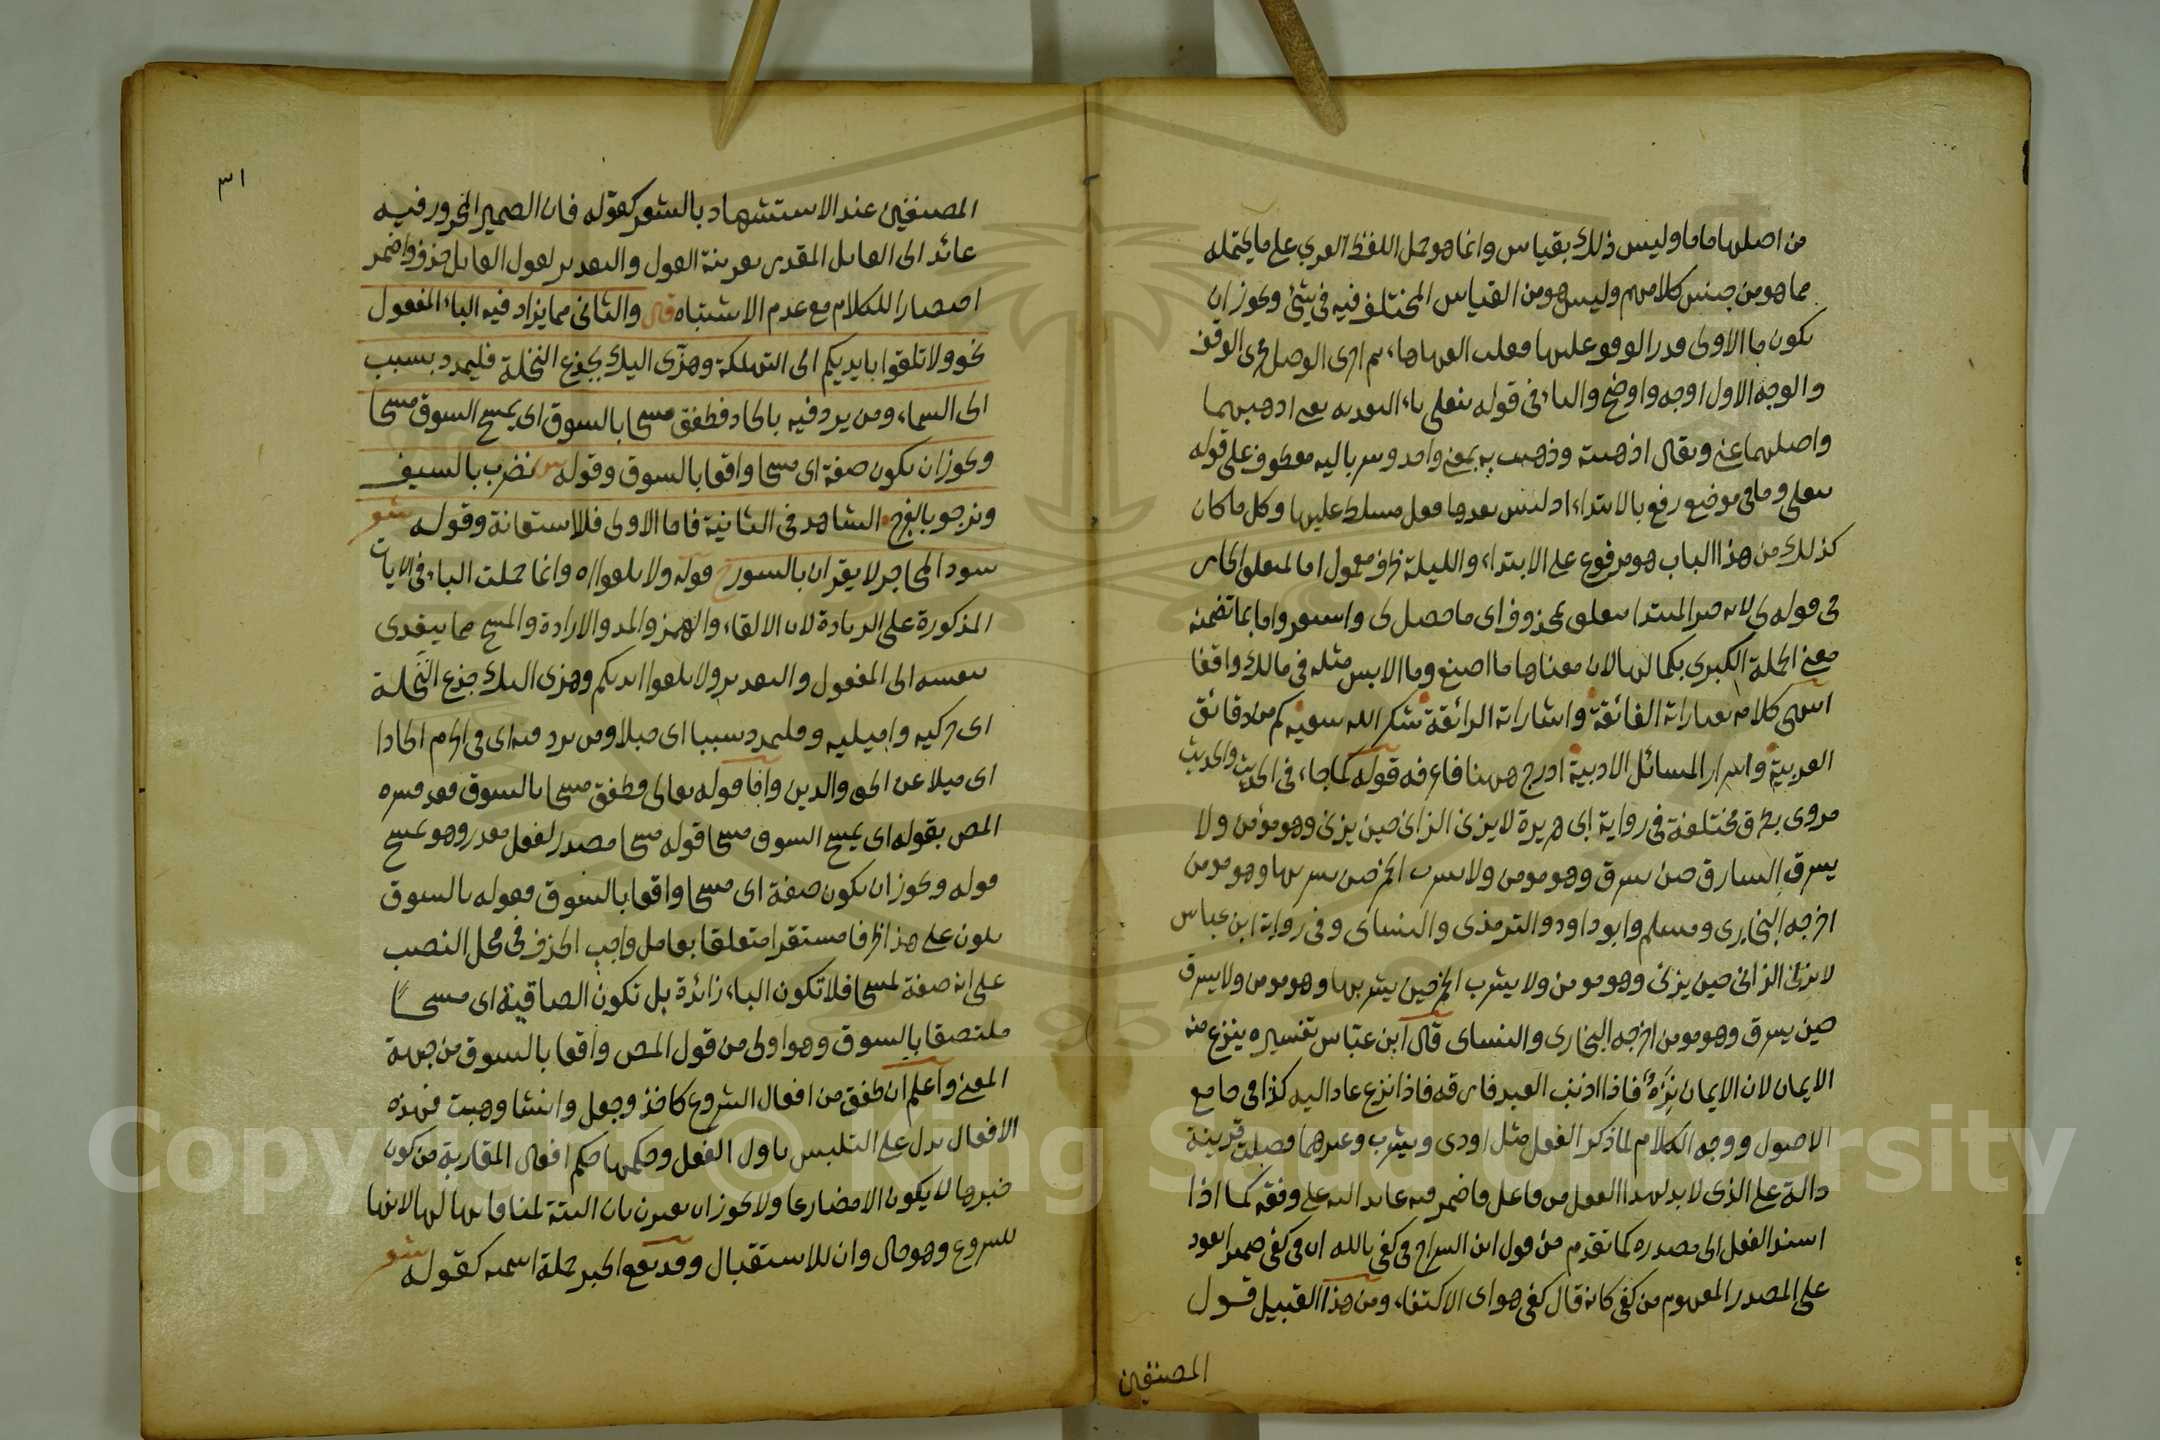 من اصلها ماما وليس ذلك بقياس وانما هو حمل اللفظ العربي على ما يحتمله
مما هو من جنس كلامهم وليس هو من القياس المختلف فيه في شئ ويجوز ان
يكون ما الاولى قدر الوقوع عليها فقلب الفها هاء ثم اجرى الوصل مجرى الوقف
والوجه الاول اوجه واوضح والباء في قوله بنعلى باء التعديه يعني اذهبهما
واصلهما عني ويقال اذهبته وذهبت به بمعنى واحد وسرباليه معطوف على قوله
بنعلى وما في موضع رفع بالابتداء اذ ليس بعدها فعل مسلط عليها وكل ما كان
كذلك من هذا الباب هو مرفوع على الابتداء والليلة ظرف معمول اما لمتعلق الجار
في قوله لى لانه خبر المبتدا متعلق بمحذوف اى ما حصل لى واستقر واما بما تضمنه
معنى الجملة الكبرى بكمالها لان معناها ما اصنع وما الابس مثله في مالك واقفا
انتهى كلامه بعباراته الفائقة واشاراته الرائقة شكر الله سعيه كم من دقائق
العربية واسرار المسائل الادبية ادرج ههنا فاعرفه قوله كما جاء في الحديث والحديث
مروى بطرق مختلفة في رواية ابى هريرة لا يزنى الزانى حين يزنى وهو مؤمن ولا
يسرق السارق حين يسرق وهو مومن ولا يشرب الخمر حين يشربها وهو مومن
اخرجه البخارى ومسلم وابو داود والترمذى والنساى وفى رواية ابن عباس
لا يزنى الزانى حين يزنى وهو مومن ولا يشرب الخمر حين يشربها وهو مومن ولا يسرق
حين يسرق وهو مومن اخرجه البخارى والنساى قال ابن عباس تفسيره ينزع منه
الايمان لان الايمان نزه فاذا اذنب العبد فارقه فاذا نزع عاد اليه كذا في جامع
الاصول ووجه الكلام لما ذكر الفعل مثل اودى ويشرب وغيرهما وحصلت قرينة
دالة على الذى لا بد لهذا الفعل من فاعل فاضمر فيه عائد اليه على وفقه كما اذا
اسند الفعل الى مصدره كما تقدم من قول ابن السراج في كفى بالله ان في كفى ضميرا يعود
على المصدر المفهوم من كفى كانه قال كفى هو اى الاكتفاء ومن هذا القبيل قول
المصنفين
٣١
المصنفين عند الاستشهاد بالشعر كقوله فان الضمير المجرور فيه
عائد الى القايل المقدر بقرينة القول والتقدير لقول القايل حذف واضمر
اختصارا للكلام مع عدم الاشتباه قال والثانى مما يزاد فيه الباء المفعول
نحو ولا تلقوا بايديكم الى التهلكة وهزى اليك بجذع النخلة فليمدد بسبب
الى السماء ومن يرد فيه بالحاد فطفق مسحا بالسوق اى يمسح السوق مسحا
ويجوز ان يكون صفة اى مسحا واقعا بالسوق وقوله نضرب بالسيف
ونرجو بالفرج الشاهد في الثانية فاما الاولى فللاستعانة وقوله شعر
سود المحاجر لا يقران بالسور قوله ولا تلقوا اه وانما حملت الباء في الايات
المذكورة على الزيادة لان الالقاء والهز والمد والارادة والمسح مما يتعدى
بنفسه الى المفعول والتقدير ولا تلقوا ايديكم وهزى اليك جذع النخلة
اى حركيه واميليه وفليمدد سببا اى حبلا ومن يرد فيه اى في الحرم الحادا
اى ميلا عن الحق والدين واما قوله تعالى فطفق مسحا بالسوق فقد فسره
المص بقوله اى يمسح السوق مسحا قوله مسحا مصدر لفعل مقدر وهو يمسح
قوله ويجوز ان يكون صفة اى مسحا واقعا بالسوق فقوله بالسوق
يكون على هذا ظرفا مستقرا متعلقا بعامل واجب الحذف في محل النصب
على انه صفة لمسحا فلا تكون الباء زائدة بل تكون الصاقية اى مسحا
ملتصقا بالسوق وهو اولى من قول المص واقعا بالسوق من جهة
المعنى واعلم ان طفق من افعال الشروع كاخذ وجعل وانشا وهبت فهذه
الافعال يدل على التلبس باول الفعل وحكمها حكم افعال المقاربة من كون
خبرها لا يكون الا مضارعا ولا يجوز ان يقترن بان البتة لمنافاتها لها لانها
للشروع وهو حال وان للاستقبال وقد يقع الخبر جملة اسمية كقوله شعر